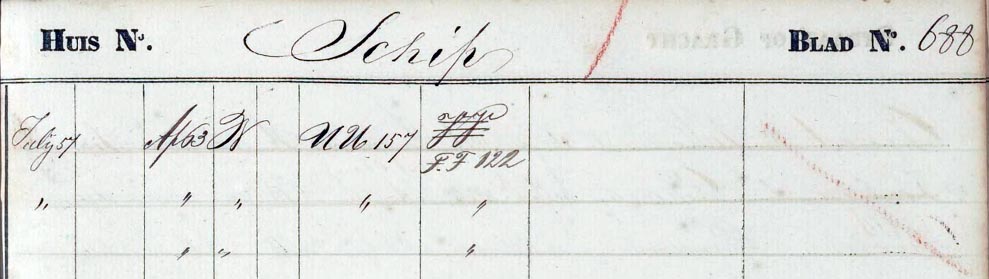 HUIS No. Schip BLAD No. 688
July 57 Ap 63 W UU 157
F. F 122
" " " " "
" " "